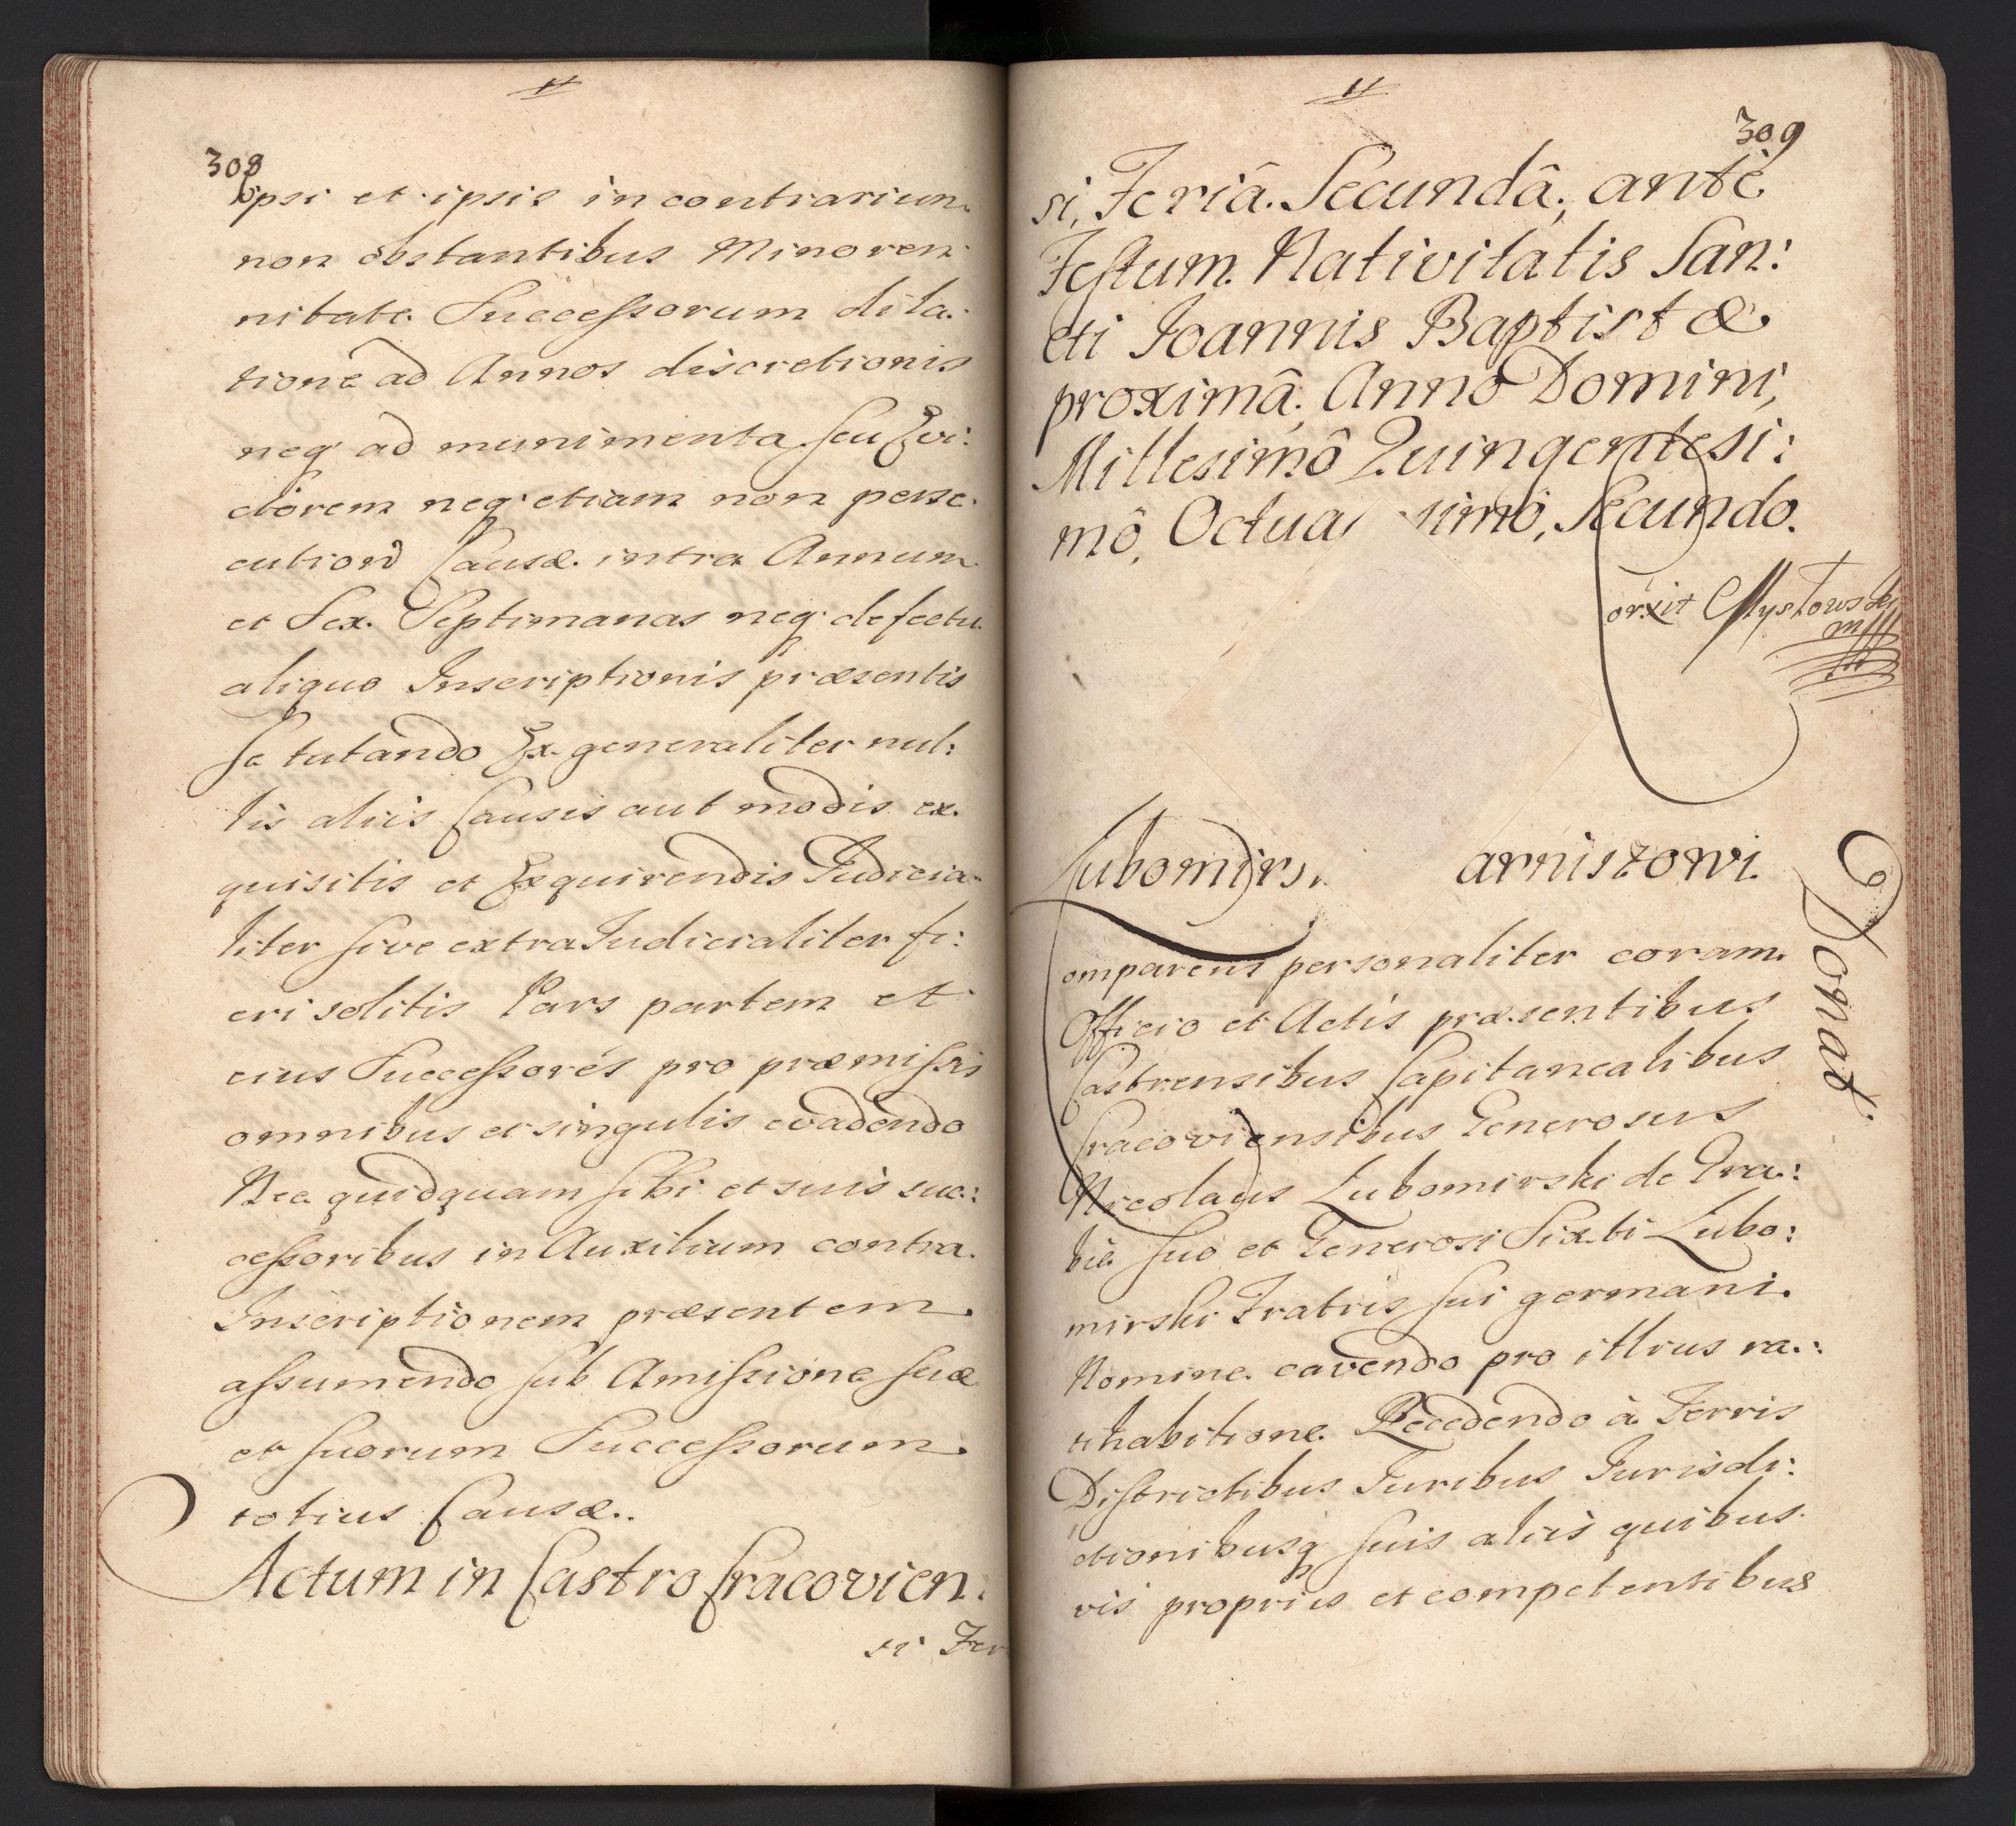 308
ipsi et ipsis in contrarium
non obstantibus Minoren:
nitate Successorum dila:
tione ad Annos discretionis
neq ad munimenta seu Evi:
ctorem neq etiam non perse:
cutione Causæ intra Annum
et Sex Septimanas neq defectu
aliquo Inscriptionis præsentis
se tutando Ex generaliter nul:
lis aliis Causis aut modis ex:
quisitis et Exquirendis Judicia:
liter sive extra Judicialiter fi:
eri solitis Pars partem et
eius Successores pro præmissis
omnibus et singulis evadendo
Nec quidquam sibi et suis suc:
cessoribus in Auxilium contra
Inscriptionem præsentem
assumendo sub Amissione suæ
et suorum Successorum
totius Causæ.
Actum in Castro Cracovien:
si Fer
309
si, Feriâ Secundâ, antè
Festum Nativitatis San:
cti Joannis Baptistæ
proximâ, Anno Domini,
Millesimô Quingentesi:
mô, Octua simô, Secundo.
Lubomirs arniszowi
Donat.
omparens personaliter coram
Officio et Actis præsentibus
Castrensibus Capitanealibus
Cracoviensibus Generosus
Nicolaus Lubomirski de Gra:
bie suo et Generosi Sixti Lubo:
mirski Fratris sui germani
Nomine cavendo pro illius ra:
tihabitione Recedendo à Terris
Districtibus Juribus Jurisdi:
ctionibusq suis aliis quibus
vis propriis et competentibus